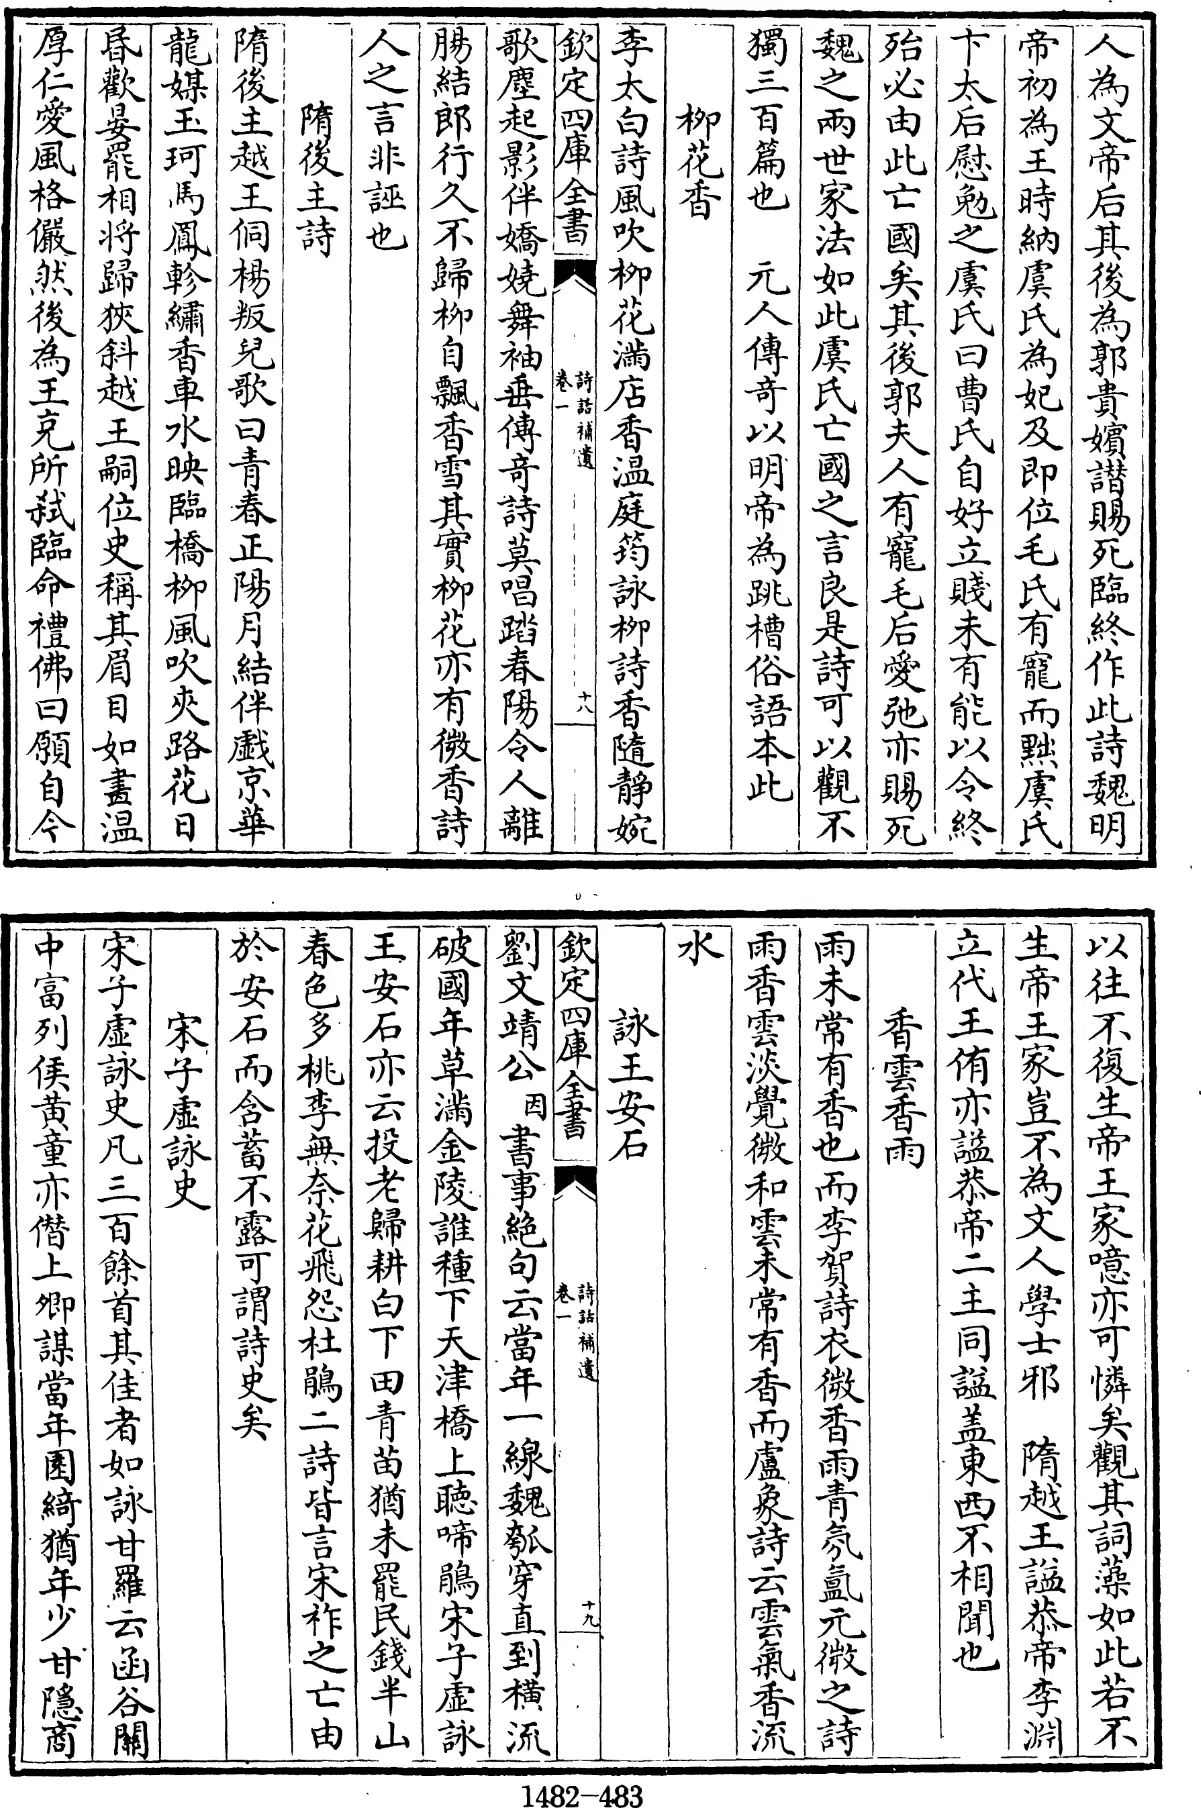 人為文帝后其後為郭貴嬪譖賜死臨終作此詩魏明
帝初為王時納虞氏為妃及即位毛氏有寵而黜虞氏
卞太后慰勉之虞氏曰曹氏自好立賤未有能以令終
殆必由此亡國矣其後郭夫人有寵毛后愛弛亦賜死
魏之兩世家法如此虞氏亡國之言良是詩可以觀不
獨三百篇也　元人傳奇以明帝為跳槽俗語本此
柳花香
李太白詩風吹柳花滿店香温庭筠詠柳詩香隨靜婉
欽定四庫全書
詩話補遺
卷一
十八
歌塵起影伴嬌嬈舞袖垂傳奇詩莫唱踏春陽令人離
腸結郎行久不歸柳自飄香雪其實柳花亦有微香詩
人之言非誣也
隋後主詩
隋後主越王侗楊叛兒歌曰青春正陽月結伴戲京華
龍媒玉珂馬鳳軫繡香車水映臨橋柳風吹夾路花日
昏歡宴罷相將歸狹斜越王嗣位史稱其眉目如畫温
厚仁愛風格儼然後為王充所弒臨命禮佛曰願自今
以往不復生帝王家噫亦可憐矣觀其詞藻如此若不
生帝王家豈不為文人學士邪　隋越王謚恭帝李淵
立代王侑亦謚恭帝二主同謚盖東西不相聞也
香雲香雨
雨未常有香也而李賀詩衣微香雨青氛氲元微之詩
雨香雲淡覺微和雲未常有香而盧象詩云雲氣香流
水
詠王安石
欽定四庫全書
詩話補遺
卷一
十九
劉文靖公因書事絶句云當年一線魏瓠穿直到橫流
破國年草滿金陵誰種下天津橋上聽啼鵑宋子虛詠
王安石亦云投老歸耕白下田青苗猶未罷民錢半山
春色多桃李無奈花飛怨杜鵑二詩皆言宋祚之亡由
於安石而含蓄不露可謂詩史矣
宋子虛詠史
宋子虛詠史凡三百餘首其佳者如詠甘羅云函谷關
中富列侯黄童亦僭上卿謀當年園綺猶年少甘隱商
1482-483